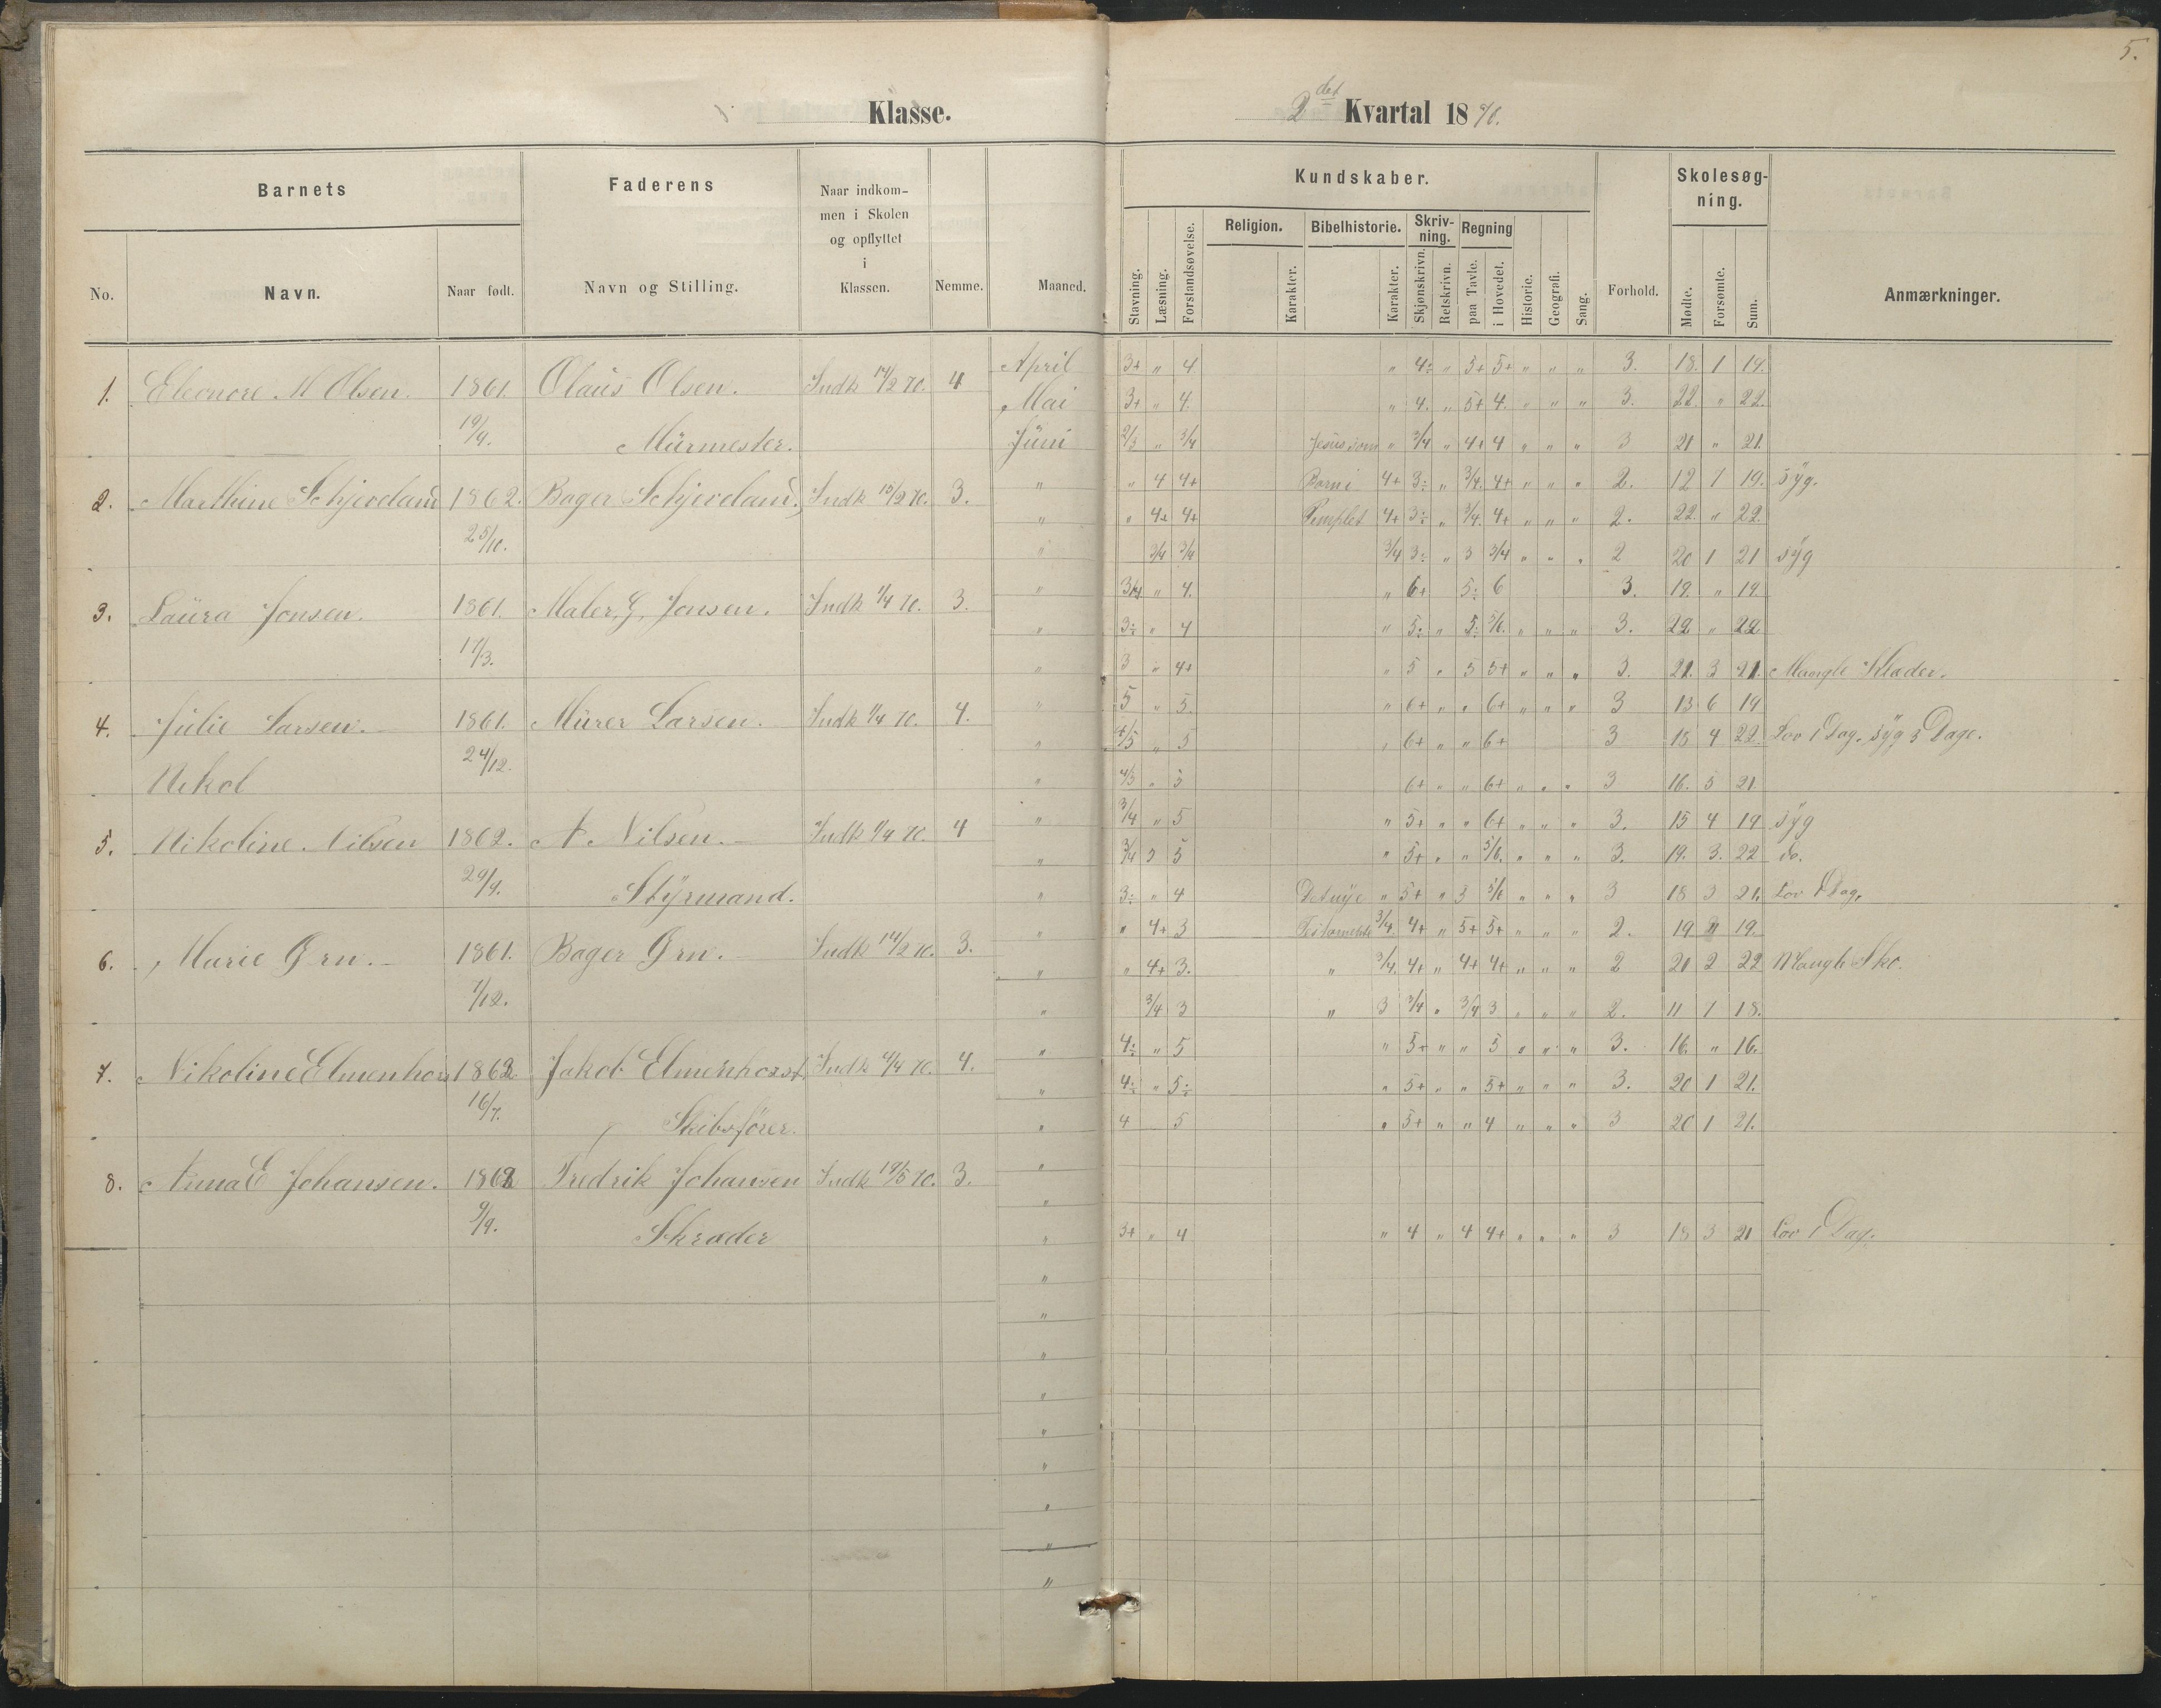 5.
1 Klasse.
2det Kvartal 1870.
Barnets
Faderens
Naar indkom-
men i Skolen
og opflyttet
i
Klassen.
No.
Navn.
Naar født.
Navn og Stilling.
Nemme.
Maaned.
Kundskaber.
Stavning.
Læsning.
Forstandsøvelse.
Religion.
Karakter.
Bibelhistorie.
Karakter.
Skriv-
ning.
Skjønskrivn.
Retskrivn.
Regning
paa Tavle.
i Hovedet.
Historie.
Geografi.
Sang.
Forhold.
Skolesøg-
ning.
Mødte.
Forsømte.
Sum.
Anmærkninger.
April 3+ " 4 " 4÷ " 5+ 5+ " " " 3. 18. 1 19.
1. Eleonore M Olsen. 1861. Olaüs Olsen. Indk 14/2 70. 4
Mai 3+ " 4. " 4. " 5+ 4. " " " 3. 22. " 22.
19/9. Mürmester.
Jüni 2/3 " 3/4 Jesus som " 3/4 " 4+ 4 " " " 3 21 " 21.
" " 4 4+ Barn i 4+ 3÷ " 3/4. 4+ " " " 2. 12 7 19. Syg.
2. Marthine Schjerdand 1862. Bager Schjerdand. Indk 15/2 70. 3.
" " 4+ 4+ Templet 4+ 3÷ " 3/4. 4+ " " " 2. 22. " 22.
25/10.
" 3/4 3/4 3/4 3÷ " 3 3/4 " " " 2 20 1 21 syg
" 3/4 " 4. " 6+ 5÷ 6 3. 19. " 19
3. Laüra Jonsen. 1861. Maler, G, Jonsen. Indk 1/4 70. 3.
" 3÷ " 4 " 5÷ " 5÷ 5/6. " " " 3. 22 " 22
17/3.
" 3 " 4+ " 5 " 5 5+ " " " 3. 21. 3 21. Mangle Klæder.
" 5 " 5. " 6+ " " 6+ " " " 3 13 6 19
4. Jülie Larsen. 1861. Mürer Larsen. Indk 1/4 70. 4.
" 4/5 " 5 " 6+ " " 6+ 3 18 4 22. Lov 1 Dag. syg 3 Dage.
24/12.
Nikol
" 4/5 " 5 6+ " " 6+ " " " 3 16. 5 21
" 3/4 " 5 " 5+ " " 6+ " " " 3. 15 4 19 Syg
5. Nikoline Nilsen 1862. A Nilsen. Indk 1/4 70. 4
" 3/4 " 5 " 5+ " " 5/6. " " " 3. 19. 3. 22 do.
29/9. Styrmand.
" 3÷ " 4 Det nye " 5+ " 3 5/6 " " " 3 18 3 21. Lov 1 Dag.
" " 4+ 3 Testamente 3/4 4+ " 5+ 5+ " " " 2. 19 " 19.
6. Marie Grn. 1861. Bager Grn. Indk 14/2 70. 3.
" " 4+ 3. " 3/4. 4+ " 4+ 4+ " " " 2 20 2 22 Mangle Sko.
7/12.
" 3/4 3 " 3 3/4 " 3/4 3 " " " 2. 11 1 18.
" 4÷ " 5 " 5+ " " 5 " " " 3. 16. " 16.
7. Nikoline Elmenhors 1862 Jakob Elmenhorst Indk 4/4 70. 4.
" 4÷ " 5÷ " 5+ " " 5+ " " " 3. 20 1 21.
16/7. Skibsfører.
" 4 5 " 5+ " " 4 " " " 3 20 1 21.
"
8. Anna E Johansen. 1862 Fredrik Johansen Indk 19/5 70. 3.
"
9/9. Skræder
" 3+ " 4 " 4 " 4 4+ " " " 3 18 3 21 Lov 1 Dag.
"
"
"
"
"
"
"
"
"